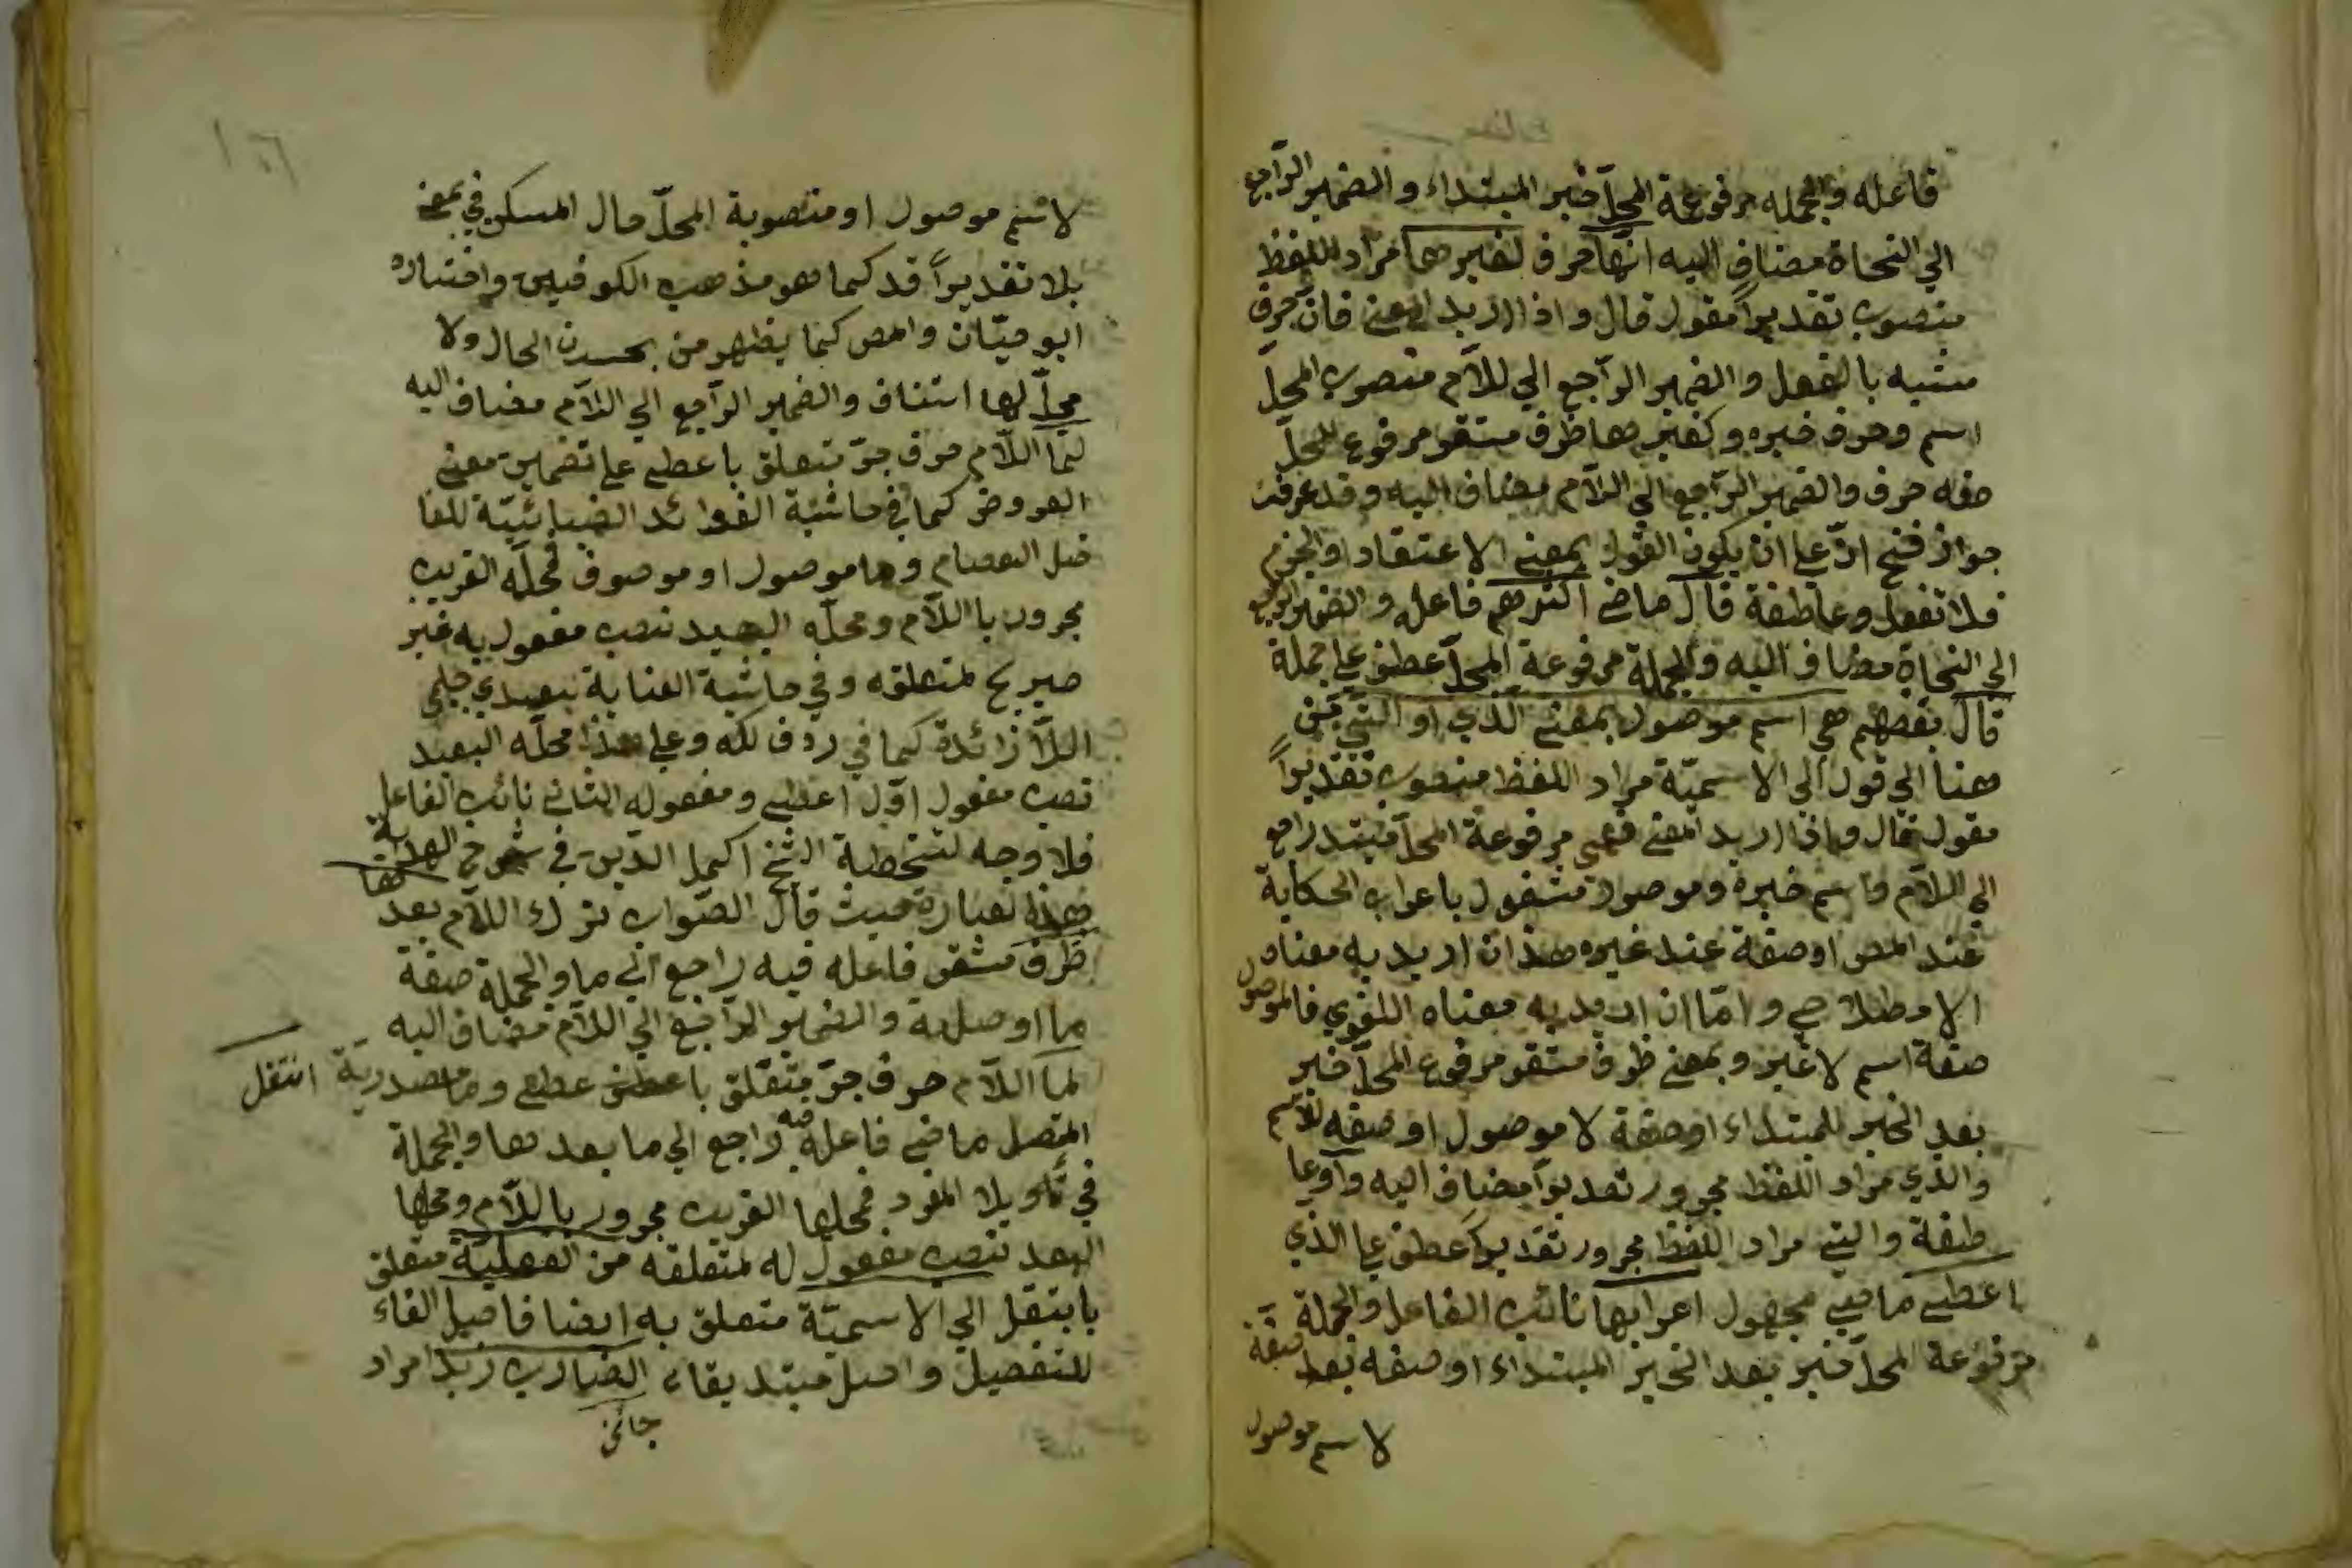 فاعله والجمله مرفوعة المحلّ خبر المبتداء والضمير الرّاجع
الي النحاة مضاف اليه انّها حرف لغيرها مراد اللفظ
منصوب تقديراً مقول قال واذا اريد المعنى فانّ حرف
مشبه بالفعل والضمير الرّاجع الي للاّم منصوب المحلّ
اسم وحرف خبره وكغيرها ظرف مستقر مرفوع المحلّ
صفه حرف والضمير الرّاجع الي اللّام مضاف اليه وقد عرفت
جواز فتح انّ علي ان يكون القول بمعنى الاعتقاد والجزم
فلا تغفل وعاطفة قال ماضى اكثرهم فاعله والضمير الراجع
الي النحاة مضاف اليه والجملة مرفوعة المحلّ عطف علي جملة
قال بعضهم هي اسم موصول بمعنى الّذي او الّتي من
هنا الي قول الي الاسميّة مراد اللفظ منصوب تقديراً
مقول قال واذا اريد المعنى فهي مرفوعة المحلّ مبتدا راجع
الي اللاّم واسم خبره وموصول مشغول باعراب الحكاية
عند المص او صفة عند غيره هذا ان اريد به معناه
الاصطلاحي وامّا ان اريد به معناه اللغوي فالموصول
صفة اسم لا غير وبمعنى ظرف مستقر مرفوع المحلّ خبر
بعد الخبر للمبتداء او صفة لا موصول او صفه للاسم
والذي مراد اللفظ مجرور تقديراً مضاف اليه واو عا
طفة والتي مراد اللفظ مجرور تقديراً عطف علي الذي
اعطى ماضى مجهول اعرابها نائب الفاعل والجملة
مرفوعة المحلّ خبر بعد الخبر المبتداء او صفه بعد صفة
لاسم موصول
لاسم موصول او منصوبة المحلّ حال المسكن في بمعنى
بلا تقديراً قد كما هو مذهب الكوفيين واختاره
ابو حيّان والمص كما يظهر من الحال ولا
محلّ لها استئناف والضمير الرّاجع الي اللّام مضاف اليه
لما اللّام حرف جرّ متعلق باعطى علي تضمين معنى
العروض كما في حاشية الفوائد الضيائيّة للفا
ضل العصام وما موصول او موصوف فمحلّه القريب
مجرور باللّام ومحلّه البعيد نصب مفعول به غير
صريح لمتعلقه وفي حاشية العناية لسعدي چلبي
اللّا زائدة كما في ردف لكم وعلي هذا محلّه البعيد
نصب مفعول اوّل اعطى ومفعوله الثاني نائب الفاعل
فلا وجه لتخطية الشيخ اكمل الدّين في شرح الهداية
هذه العبارة حيث قال الصّواب ترك اللّام بعد
ظرف مستقر فاعله فيه راجع الي ما والجملة صفة
ما او صله والضمير الرّاجع الي اللّام مضاف اليه
لما اللّام حرف جرّ متعلّق باعطى وما مصدريّة انتقل
المتصل ماضى فاعله فيه راجع الي ما بعدها والجملة
في تأويل المفرد فمحلها القريب مجرور باللّام ومحلها
البعيد نصب مفعول له لمتعلقه من الفعليّة متعلق
بانتقل الي الاسميّة متعلق به ايضا فاصل الفاء
للتفصيل واصل مبتدا الضارب زيد مراد
جائني